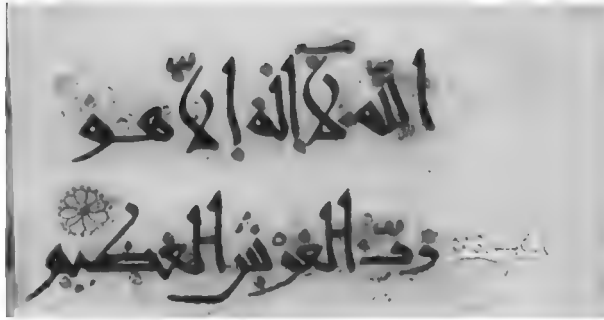 الله لا اله الا هو
رب العرش العظيم